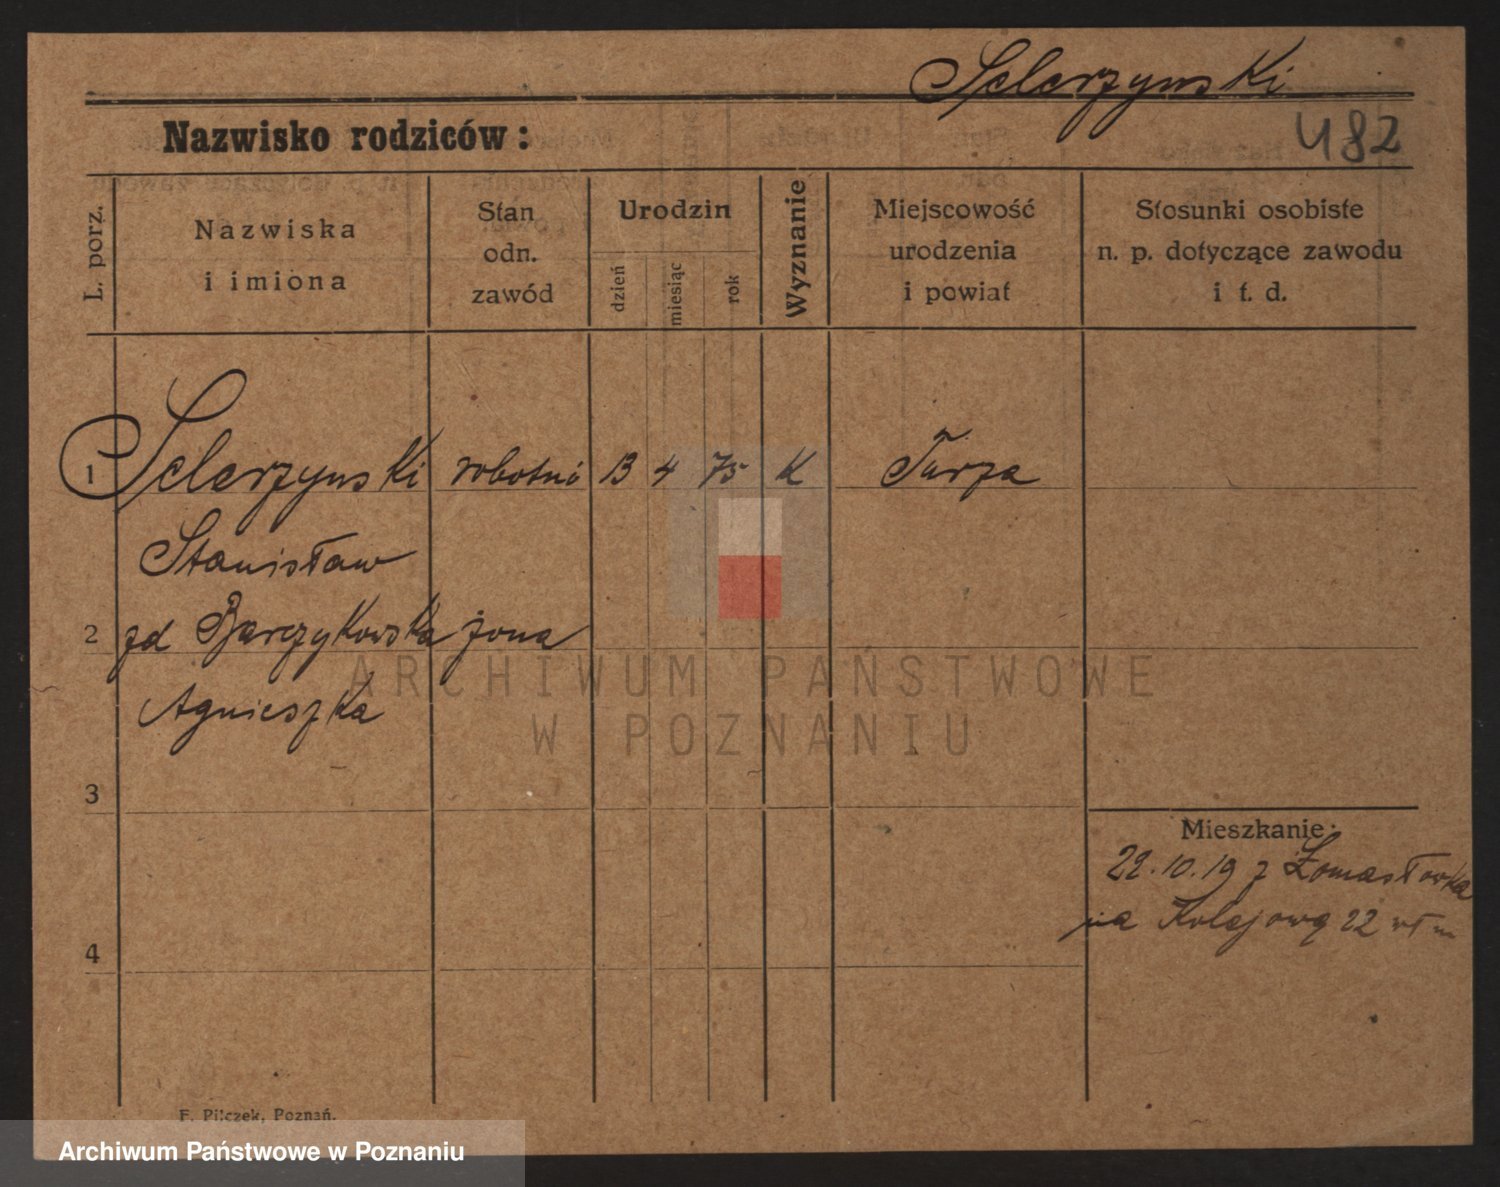 Selerzynski
Nazwisko rodziców:
482
L. porz.
Nazwiska
i imiona
Stan
odn.
zawód
Urodzin
dzień
miesiąc
rok
Wyznanie
Miejscowość
urodzenia
i powiat
Stosunki osobiste
n. p. dotyczące zawodu
i t. d.
1 Selerzynski robotni 13 4 75 K Turza
Stanisław
2 zd Barczykowska żona
Agnieszka
3
Mieszkanie:
22.10.19 z
na Kolejową 22
4
F. Pilczek, Poznań.
ARCHIWUM PAŃSTWOWE
W POZNANIU
Archiwum Państwowe w Poznaniu